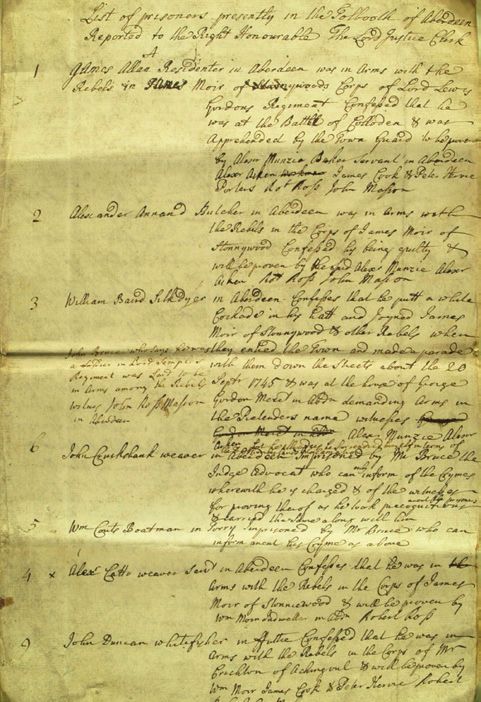 List of prisoners presently in the Tolbooth of Aberdeen
Reported to the Right Honourable The Lord Justice Clerk
1 James Allan Residenter in Aberdeen was in Arms with the
Rebels in James Moir of Stonnywoods Corps of Lord Lewis
Gordons Regiment Confessed that he
was at the Battle of Colloden & was
Apprehended by the Town Guard to be proven
by Alexr Munzie Barber Servant in Aberdeen
Alexr Aiken James Cook & Peter Herrie
Porters Robt Ross John Masson
2 Alexander Annand Butcher in Aberdeen was in Arms with
the Rebels in the Corps of James Moir of
Stonnywood Confessed his being guilty &
will be proven by the said Alexr Munzie Alexr
Aiken Robt Ross John Masson
3 William Baird Silkdyer in Aberdeen Confesses that he putt a white
Cockade in his hatt and Joyned James
Moir of Stonnywood & other Rebels when
they entred the Town and made a parade
with them down the Streets about the 20
Septr 1745 & was at the house of George
Gordon Mercht in Abdn demanding Arms in
the Pretenders name witnesses
Alexr Munzie Alexr
John
Regiment was Said to be
in Arms among the Rebels
witnes John Ross Masson
in Aberdeen
6 John Cruckshank weaver in Aberdeen Imprisoned by Mr Bruce the
Judge Advocat who can inform of the Crymes
wherewith he is charged & of the witnesses
for proving therof as he took precognitions
& carried the same along with him
5 Wm Couts Boatman in Torry Imprisoned by Mr Bruce who can
inform anent his Cryme as above
4 x Alexr Catto weaver Servt in Aberdeen Confesses that he was in
Arms with the Rebels in the Corps of James
Moir of Stonniewood & will be proven by
Wm Moir Indweller in Abdn Robert Ross
9 John Duncan whitefisher in Futtie Confessed that he was in
Arms with the Rebels in the Corps of Mr
Crichton of Achingoul & will be proven by
Wm Moir James Cook & Peter Herrie Robert